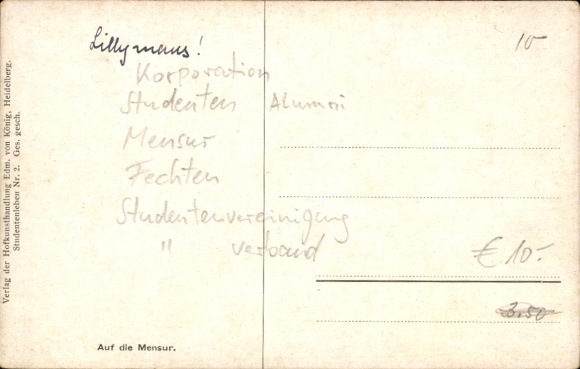 Lillymaus!
Korporation
Studenten Alumni
Mensur
Fechten
Studentenvereinigung
" verband
10-
€ 10.-
3.50
Verlag der Hofkunsthandlung Edm. von König, Heidelberg.
Studentenleben Nr. 2. Ges. gesch.
Auf die Mensur.